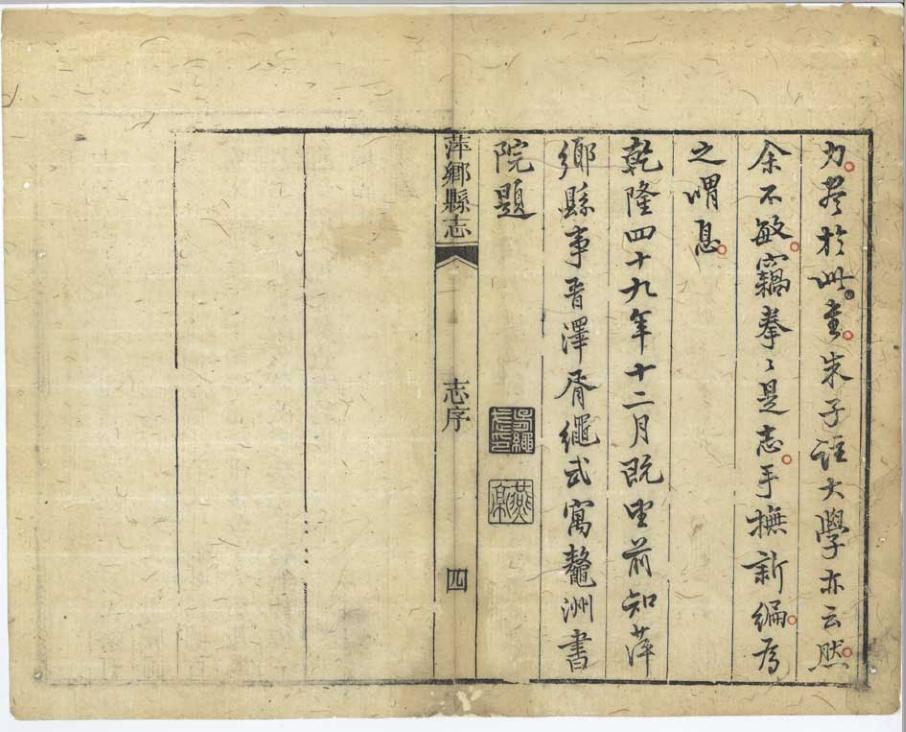 力盡於此書朱子註大學亦云然
余不敏竊拳〻是志手撫新編爲
之喟息
乾隆四十九年十二月既望前知萍
鄉縣事晋澤胥繩武寓鼇洲書
院題
萍鄉縣志
志序
四